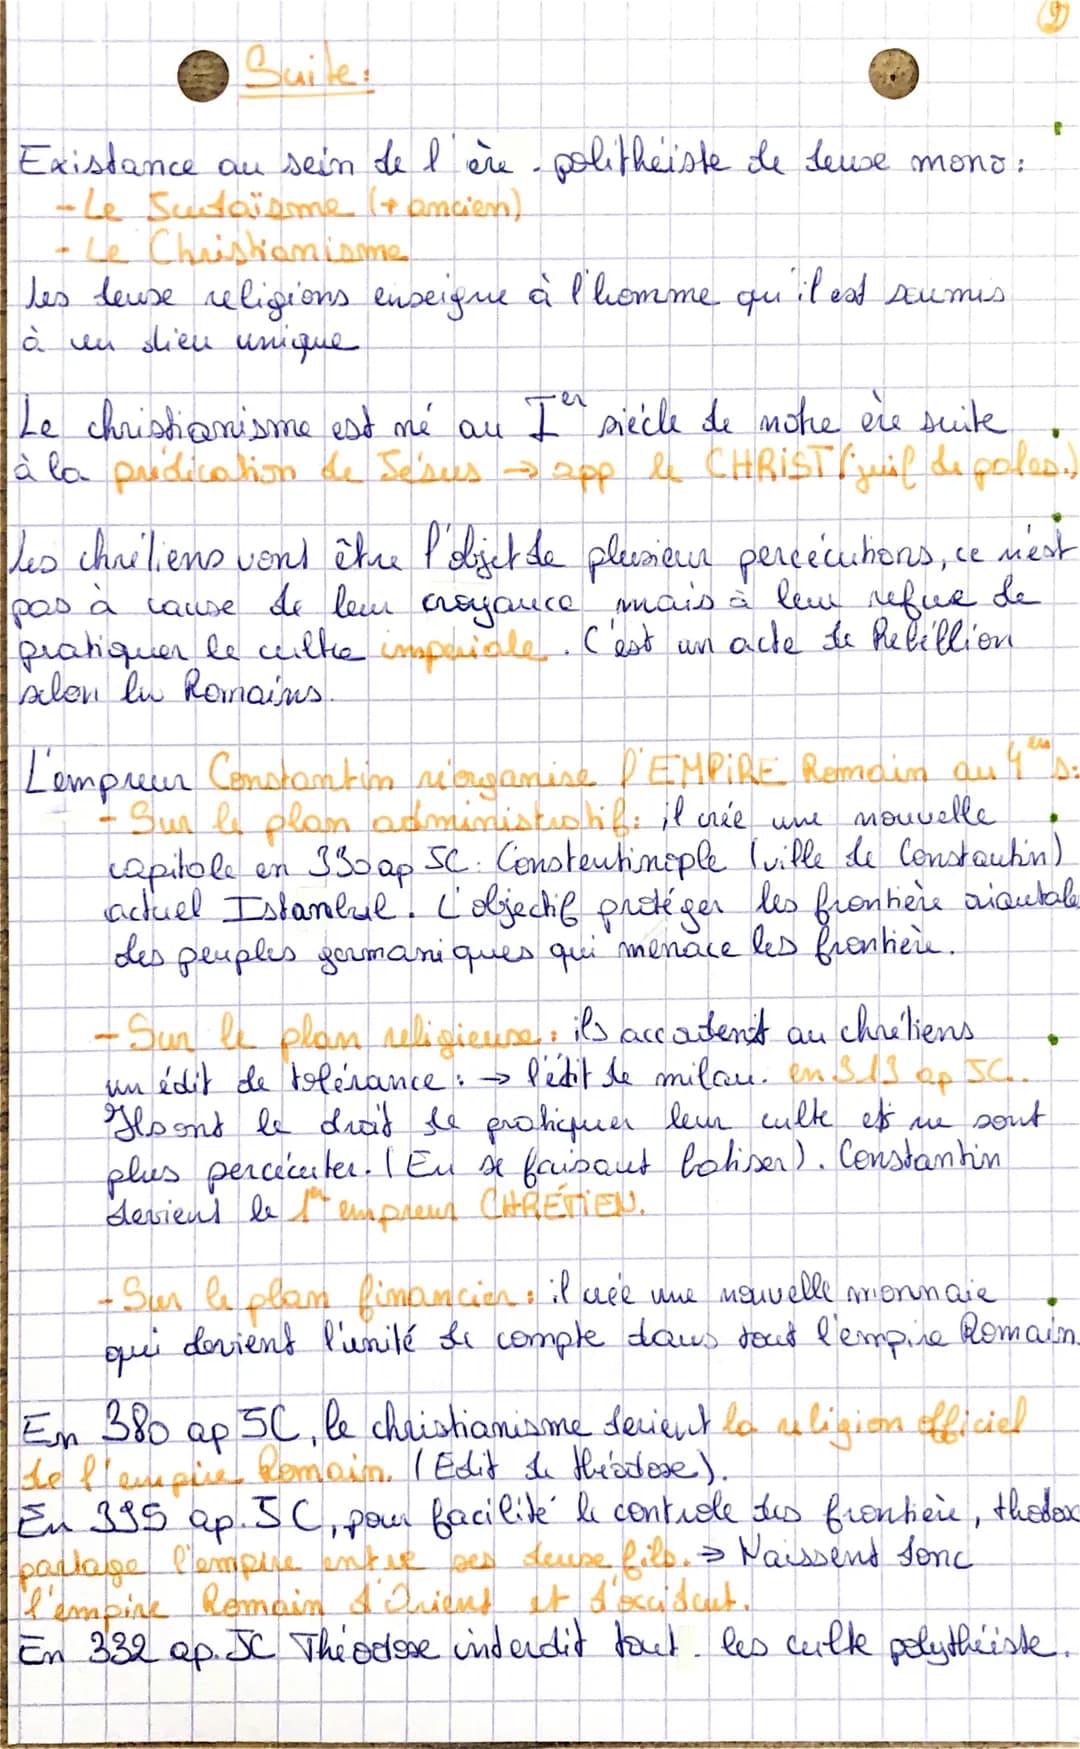 2
Suite:
Existance au sein de l'ère polithéiste de deuxe mono:
- Le Judaïsme (+ ancien)
- Le Christianisme
Les deuxe religions enseigne à l'homme qu'il est soumis
à un dieu unique
Le christianisme est né au Ier siècle de notre ère suite
à la prédication de Jésus → app le CHRIST (juif de pales.)
Les chrétiens vont être l'objet de plusieur percécutions, ce n'est
pas à cause de leur croyance mais à leur refue de
pratiquer le culte imperiale. C'est un acte de Rebéllion
selon les Romains.
L'empreur Constantin réorganise l'EMPIRE Romain au 4ème s:
- Sur le plan administratif: il crée une nouvelle
capitale en 330 ap JC: Constentinople (ville de Constantin)
actuel Istanbul. L'objectif protéger les frontière orientale
des peuples germaniques qui menace les frontière.
- Sur le plan religieuse: ils accordent au chrétiens
un édit de tolérance: → l'édit de milan. en 313 ap JC.
Ils ont le droit de pratiquer leur culte et ne sont
plus percécuter. (En se faisant batiser). Constantin
devient le 1er empreur CHRÉTIEN.
- Sur le plan financier: il crée une nouvelle monnaie
qui devient l'unité de compte dans tout l'empire Romain.
En 380 ap JC, le christianisme devient la religion officiel
de l'empire Romain. (Edit de théodose).
En 395 ap. JC, pour facilité le controle des frontière, thodox
partage l'empire entre ses deuxe fils. → Naissent donc
l'empire Romain d'Orient et d'occident.
En 392 ap. JC Théodose interdit tout les culte polythéiste.